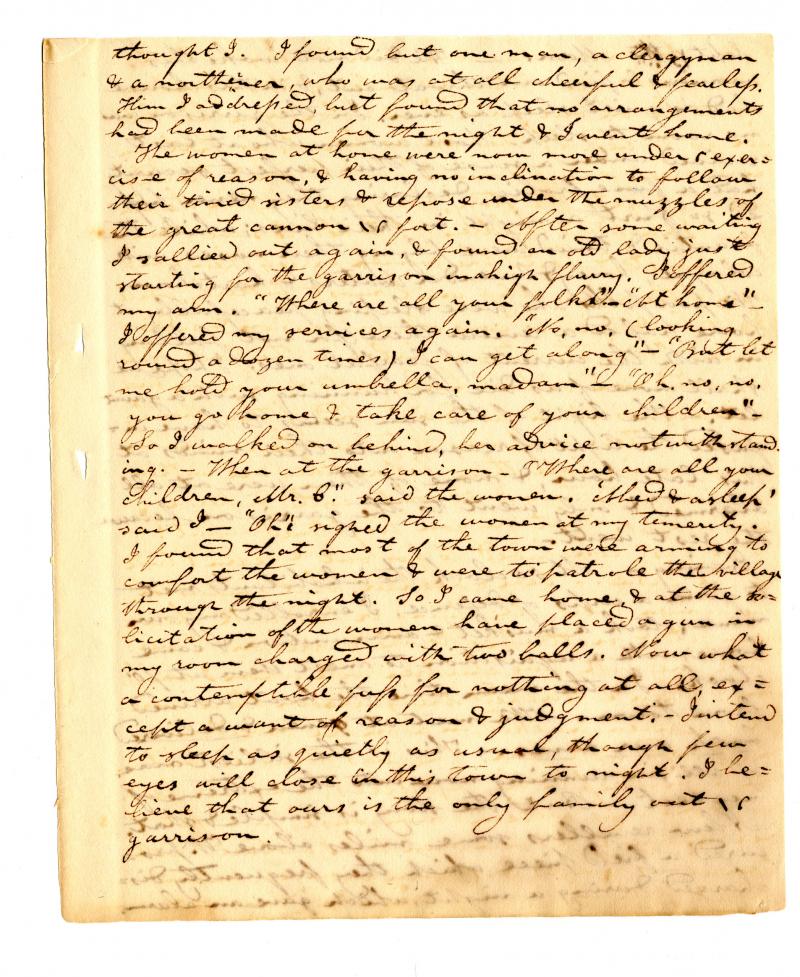 thought I. I found but one man, a clergyman
& a northener, who was at all cheerful & fearless.
Him I addressed, but found that no arrangements
had been made for the night & I went home.
The women at home were now more under exer=
cise of reason, & having no inclination to follow
their timid sisters & repose under the muzzles of
the great cannon fort. - After some waiting
I sallied out again, & found an old lady just
starting for the garrison in a high flurry. I offered
my arm. "Where are all your folks" - "At home" -
I offered my services again. "No, no, (looking
round a dozen times) I can get along" - "But let
me hold your umbrella, madam" - "Oh, no, no,
you go home & take care of your children" -
So I walked on behind, her advice notwithstand
ing. - When at the garrison - "Where are all your
children, Mr. B." said the women. 'Abed & asleep'
said I - "Oh" sighed the women at my temerity.
I found that most of the town were arming to
comfort the women & were to patrole the village
through the night. So I came home, & at the so=
licitation of the women have placed a gun in
my room charged with two balls. Now what
a contemptible fuss for nothing at all, ex=
cept a want of reason & judgment. - I intend
to sleep as quietly as usual, though few
eyes will close in this town to night. I be=
lieve that ours is the only family out
garrison.